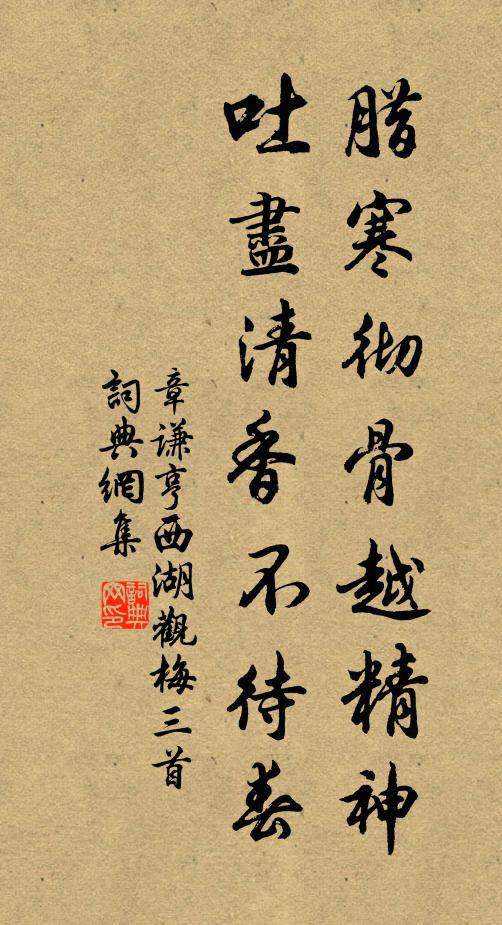 腊寒彻骨越精神
吐盡清香不待春
章谦亨西湖觀梅三首
詞典網集
詞典